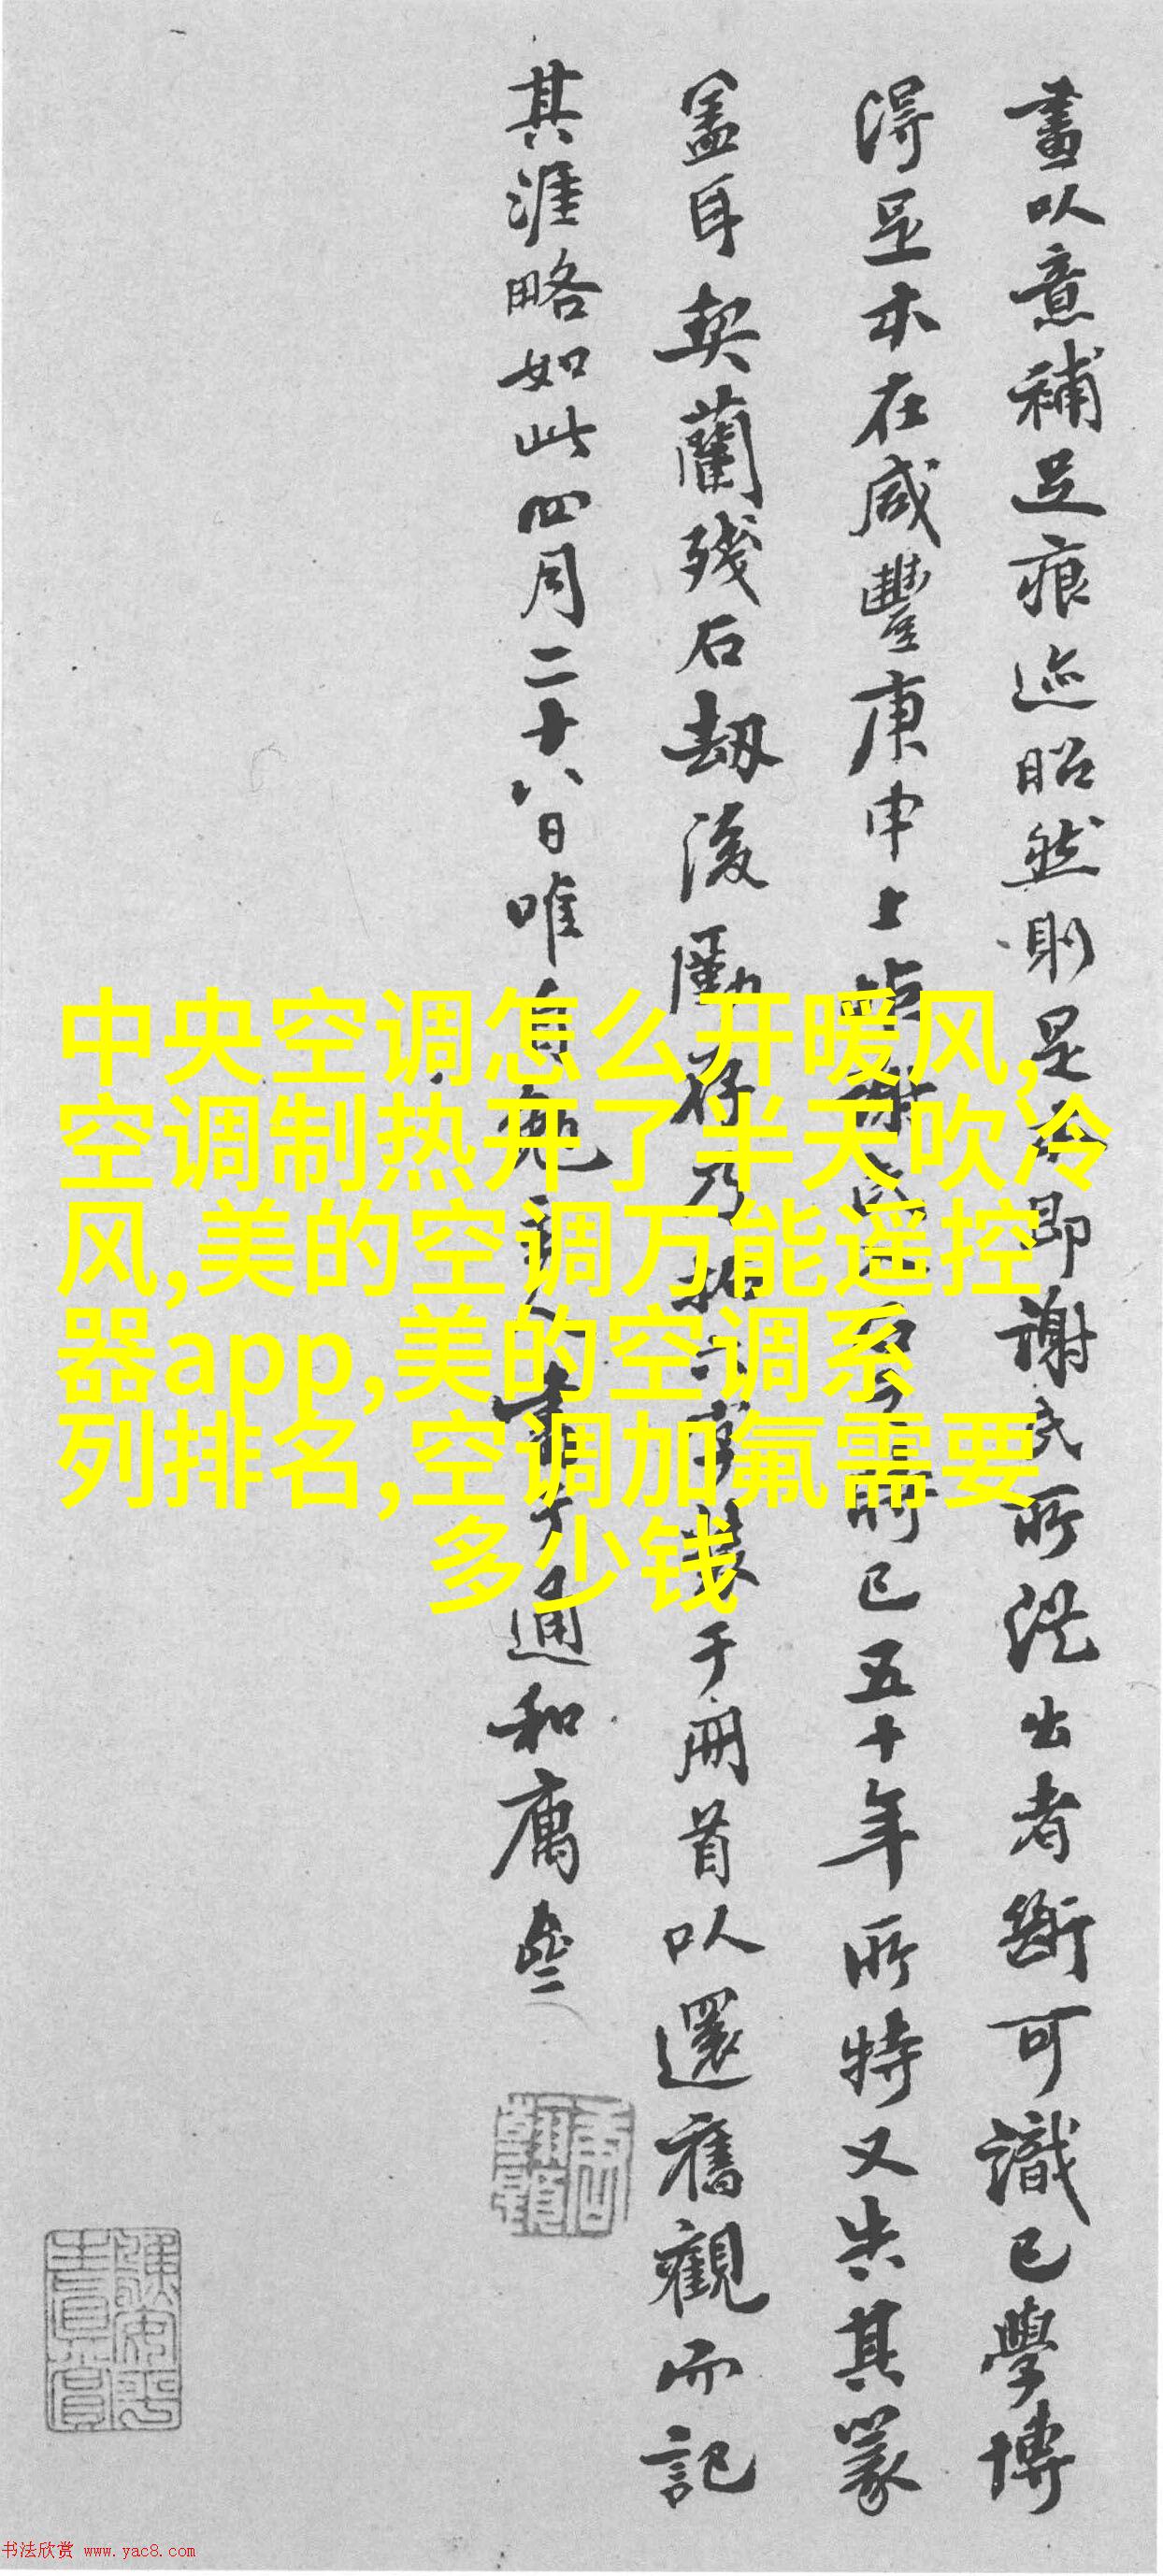 畫以意補足痕迹昭然則是即謝氏所從出者斷可識已學博
得足本在咸豐庚申上已五十年所特又失其篆
盖耳契蘭殘石劫後勵存乃于册首以還舊觀而記
其涯略如此四月二十八日唯通和庽
中央空调怎么开暖风,
空调制热开了半天吹冷
风,美的空调万能遥控
器app,美的空调系
列排名,空调加氟需要
多少钱
书法欣赏 www.yac8.com